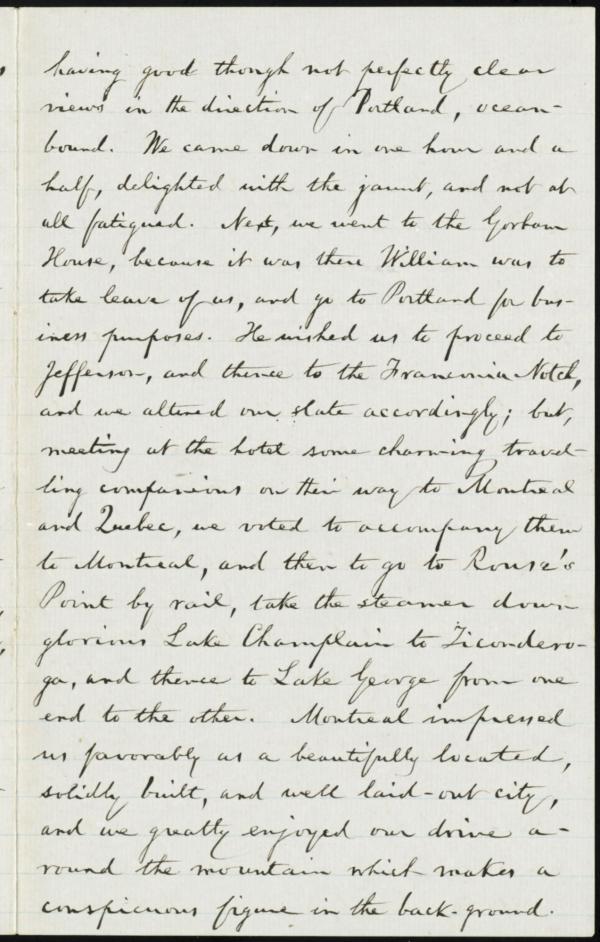 having good though not perfectly clear
views in the direction of Portland, ocean-
bound. We came down in one hour and a
half, delighted with the jaunt, and not at
all fatigued. Next, we went to the Gorham
House, because it was there William was to
take leave of us, and go to Portland for bus-
iness purposes. He wished us to proceed to
Jefferson, and thence to the Franconia Notch,
and we altered our slate accordingly; but,
meeting at the hotel some charming travel-
ling companions on their way to Montreal
and Quebec, we voted to accompany them
to Montreal, and then to go to Rouse's
Point by rail, take the steamer down
glorious Lake Champlain to Ticondero-
ga, and thence to Lake George from one
end to the other. Montreal impressed
us favorably as a beautifully located,
solidly built, and well laid-out city,
and we greatly enjoyed our drive a-
round the mountain which makes a
conspicuous figure in the back-ground.